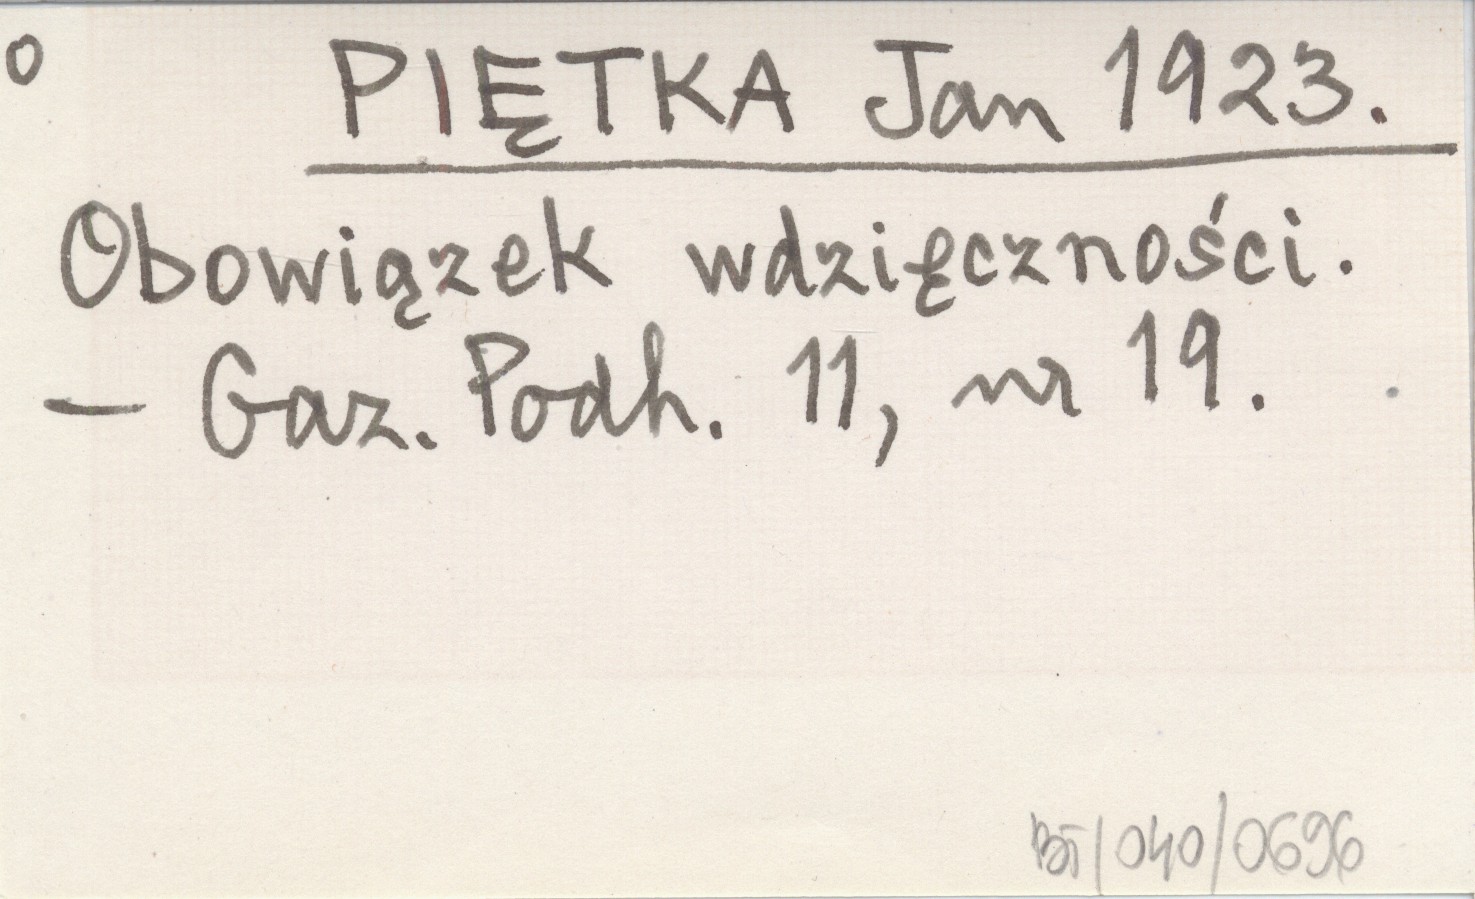 o PIĘTKA Jan 1923.
Obowiązek wdzięczności.
– Gaz. Podh. 11, nr 19.
BT/040/0696